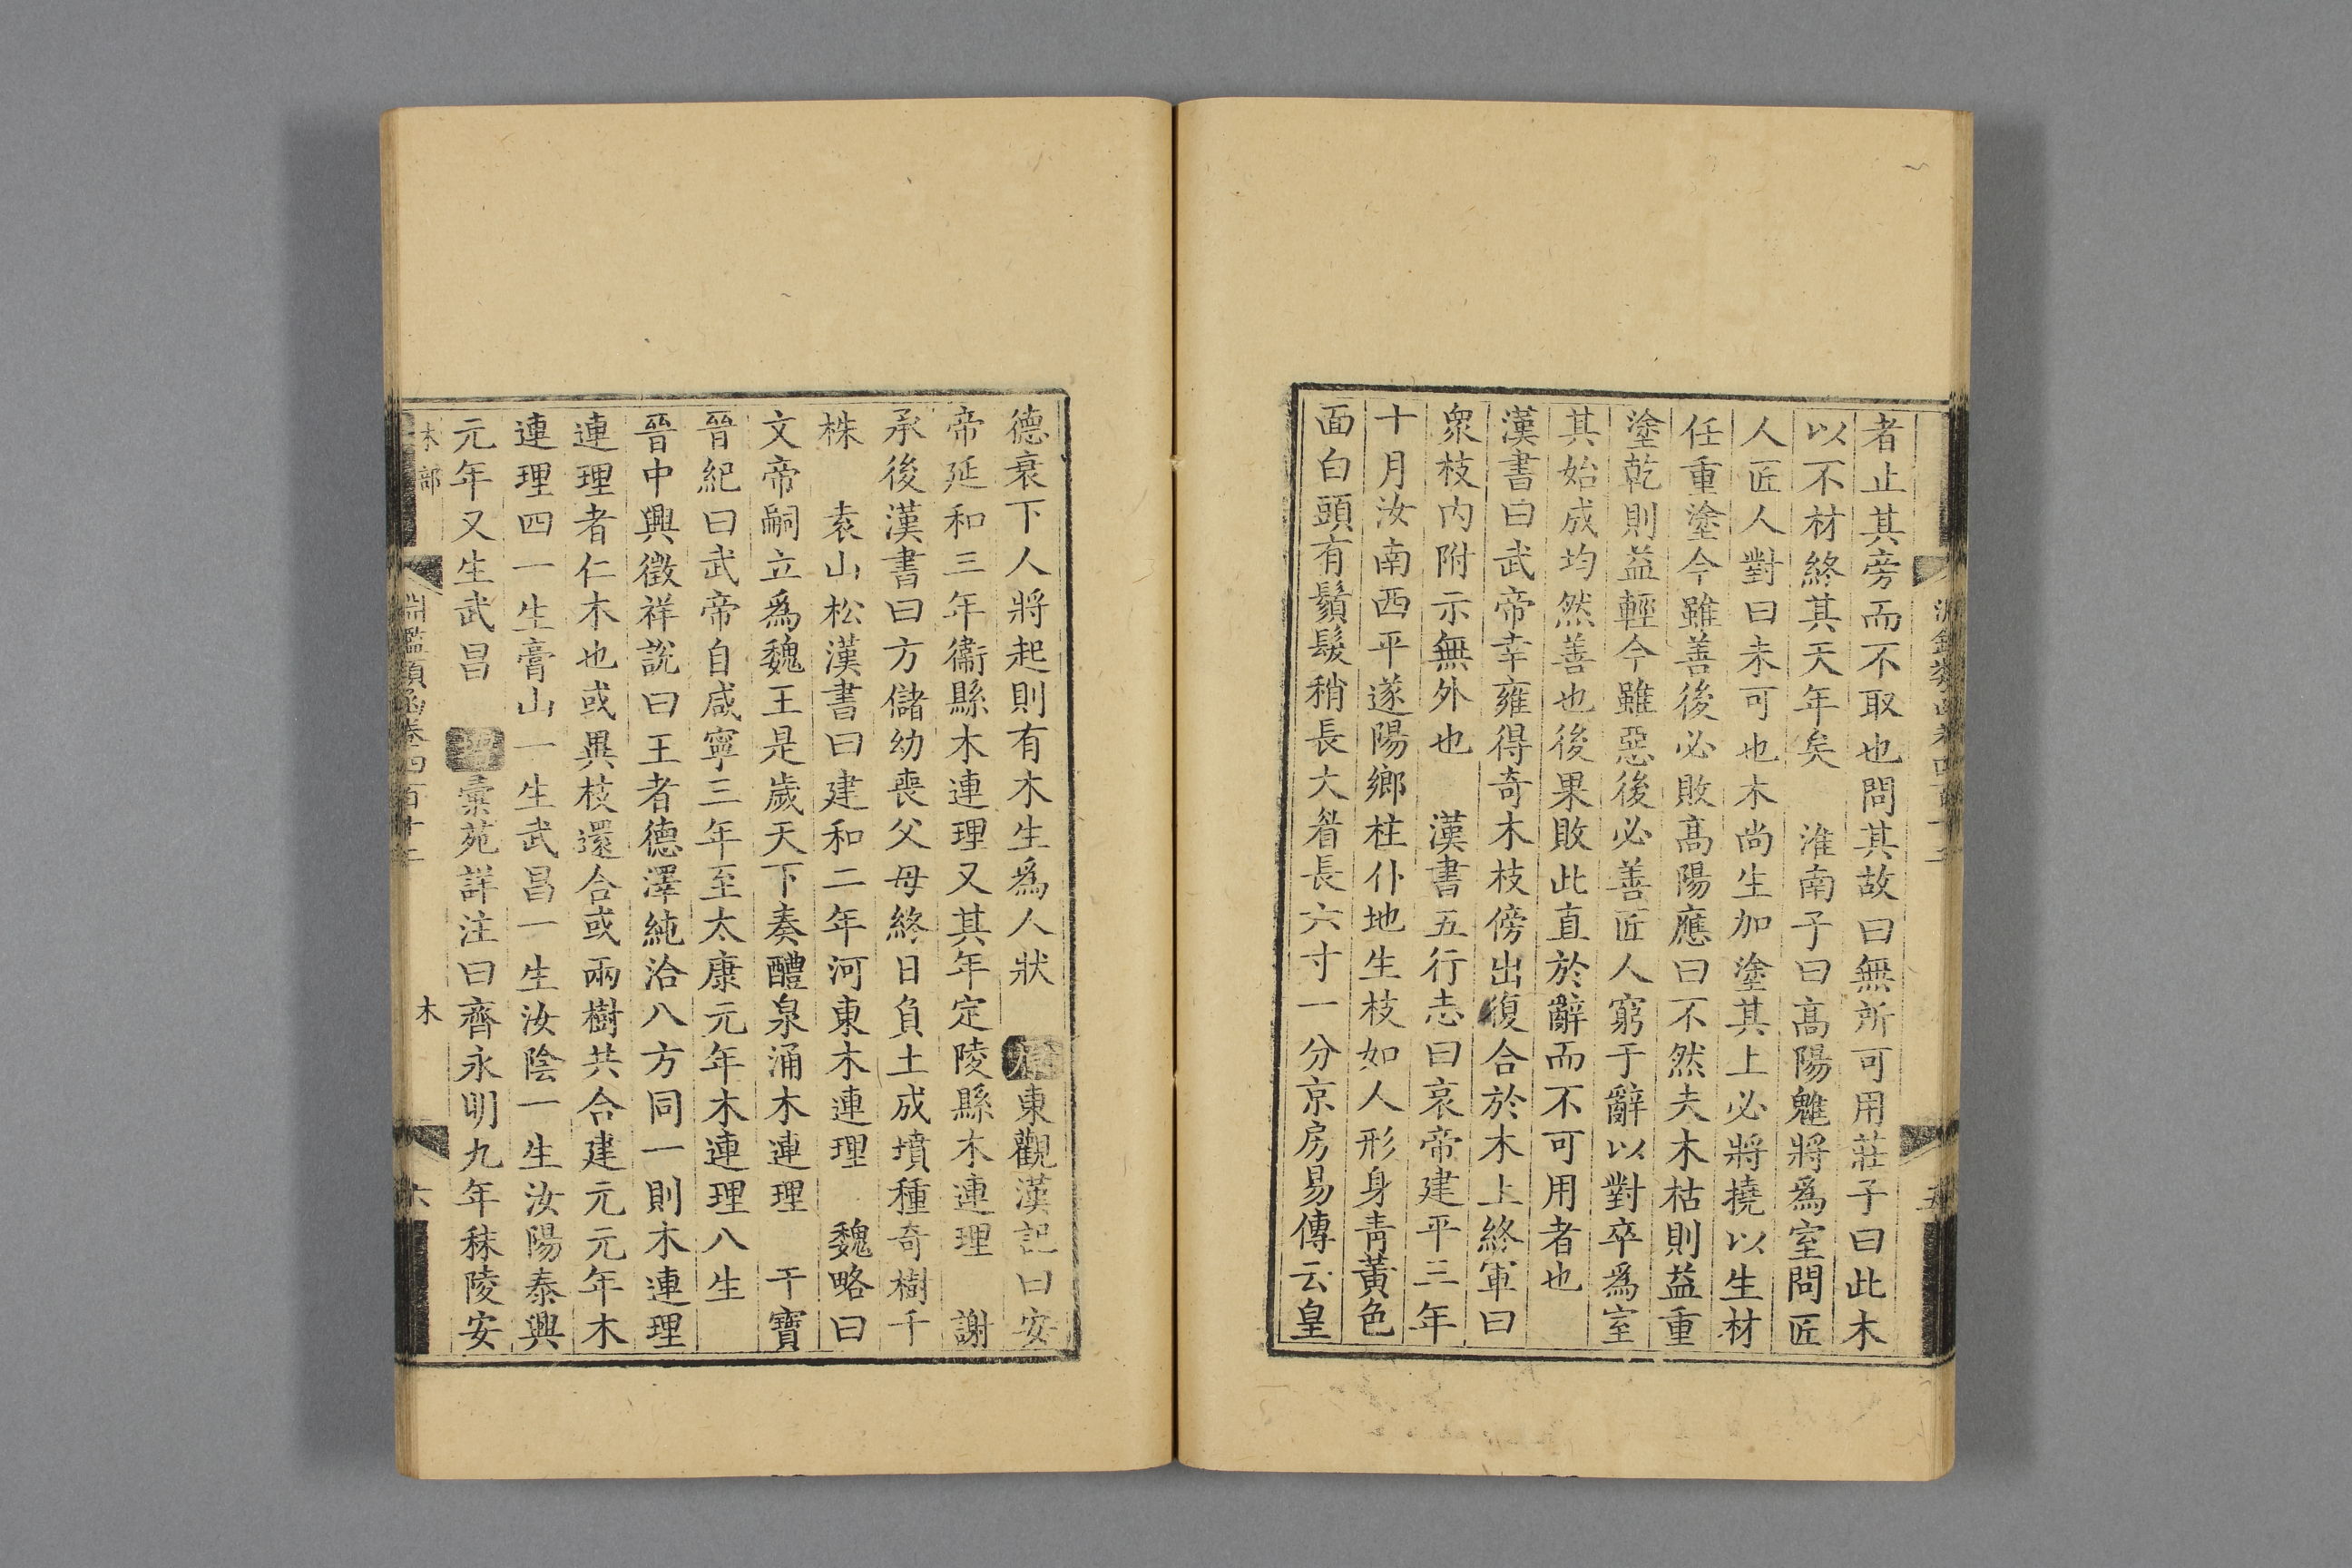 者止其旁而不取也問其故曰無所可用莊子曰此木
以不材終其天年矣　淮南子曰高陽魋將爲室問匠
人匠人對曰未可也木尚生加塗其上必將撓以生材
任重塗今雖善後必敗高陽應曰不然夫木枯則益重
塗乾則益輕今雖惡後必善匠人窮于辭以對卒爲室
其始成均然善也後果敗此直於辭而不可用者也
漢書曰武帝幸雍得奇木枝傍出復合於木上終軍曰
衆枝内附示無外也　漢書五行志曰哀帝建平三年
十月汝南西平遂陽鄉柱仆地生枝如人形身青黃色
面白頭有鬚髮稍長大眉長六寸一分京房易傳云皇
德衰下人將起則有木生爲人狀　東觀漢記曰安
帝延和三年衞縣木連理又其年定陵縣木連理　謝
承後漢書曰方儲幼喪父母終日負土成墳種奇樹千
株　袁山松漢書曰建和二年河東木連理　魏略曰
文帝嗣立爲魏王是歲天下奏醴泉涌木連理　干寶
晉紀曰武帝自咸寧三年至太康元年木連理八生
晉中興徵祥說曰王者德澤純洽八方同一則木連理
連理者仁木也或異枝還合或兩樹共合建元元年木
連理四一生膏山一生武昌一生汝陰一生汝陽泰興
元年又生武昌　彙苑詳注曰齊永明九年秣陵安
木部
淵鑑類函卷四百十
木
六